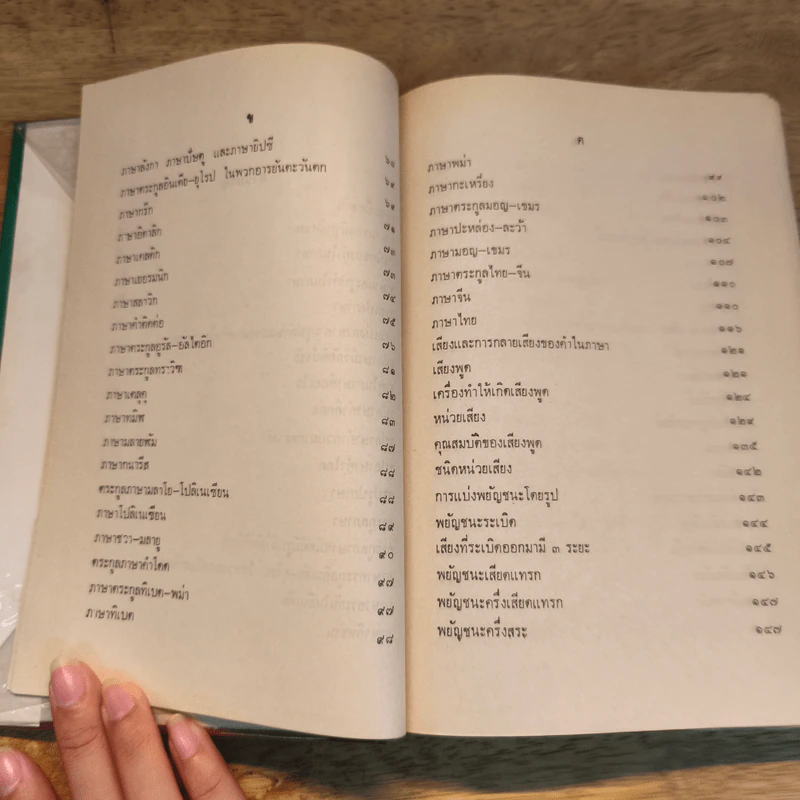 ข
ภาษาลังกา ภาษาบัษตุ และภาษายิปซี
ภาษาตระกูลอินเดีย-ยุโรป ในพวกอารยันตะวันตก ๖๙
ภาษากรีก
ภาษาอิตาลิก ๗๑
ภาษาเคลติก ๗๓
ภาษาเยอรมนิก ๗๓
ภาษาสลาวิก ๗๔
ภาษาคำติดต่อ ๗๕
ภาษาตระกูลอูรัล-อัลไตอิก ๗๖
ภาษาตระกูลทราวิฑ ๘๑
ภาษาเตลุคุ ๘๒
ภาษาทมิฬ ๘๓
ภาษามลายพัม ๘๗
ภาษากนารีส ๘๘
ตระกูลภาษามลาโย-โปลิเนเซียน ๘๘
ภาษาโปลิเนเซียน ๘๙
ภาษาชวา-มลายู ๙๐
ตระกูลภาษาคำโดด ๙๗
ภาษาตระกูลทิเบต-พม่า ๙๗
ภาษาทิเบต ๙๘
ค
ภาษาพม่า ๙๙
ภาษากะเหรี่ยง ๑๐๒
ภาษาตระกูลมอญ-เขมร ๑๐๓
ภาษาปะหล่อง-ละว้า ๑๐๔
ภาษามอญ-เขมร ๑๐๗
ภาษาตระกูลไทย-จีน ๑๑๐
ภาษาจีน ๑๑๐
ภาษาไทย ๑๑๖
เสียงและการกลายเสียงของคำในภาษา ๑๒๑
เสียงพูด ๑๒๑
เครื่องทำให้เกิดเสียงพูด ๑๒๔
หน่วยเสียง ๑๒๙
คุณสมบัติของเสียงพูด ๑๓๕
ชนิดหน่วยเสียง ๑๔๒
การแบ่งพยัญชนะโดยรูป ๑๔๓
พยัญชนะระเบิด ๑๔๔
เสียงที่ระเบิดออกมามี ๓ ระยะ ๑๔๕
พยัญชนะเสียดแทรก ๑๔๖
พยัญชนะครึ่งเสียดแทรก ๑๔๗
พยัญชนะครึ่งสระ ๑๔๗